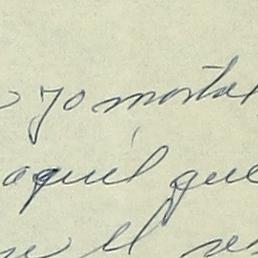 yo mortal
aquél que
el